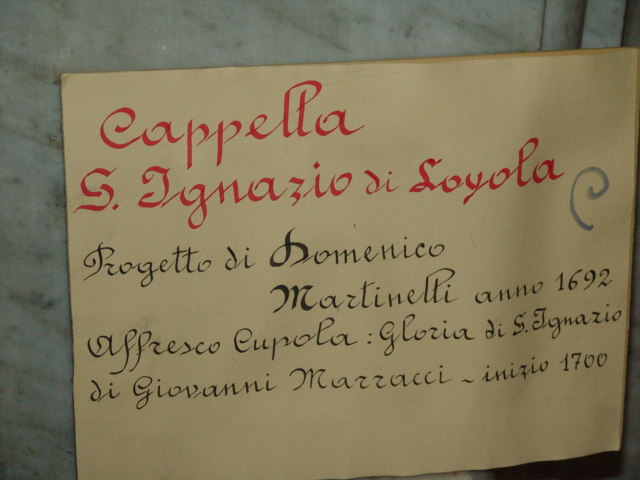 Cappella
S. Ignazio di Loyola
Progetto di Domenico
Martinelli anno 1692
Affresco Cupola : Gloria di S. Ignazio
di Giovanni Marracci - inizio 1700